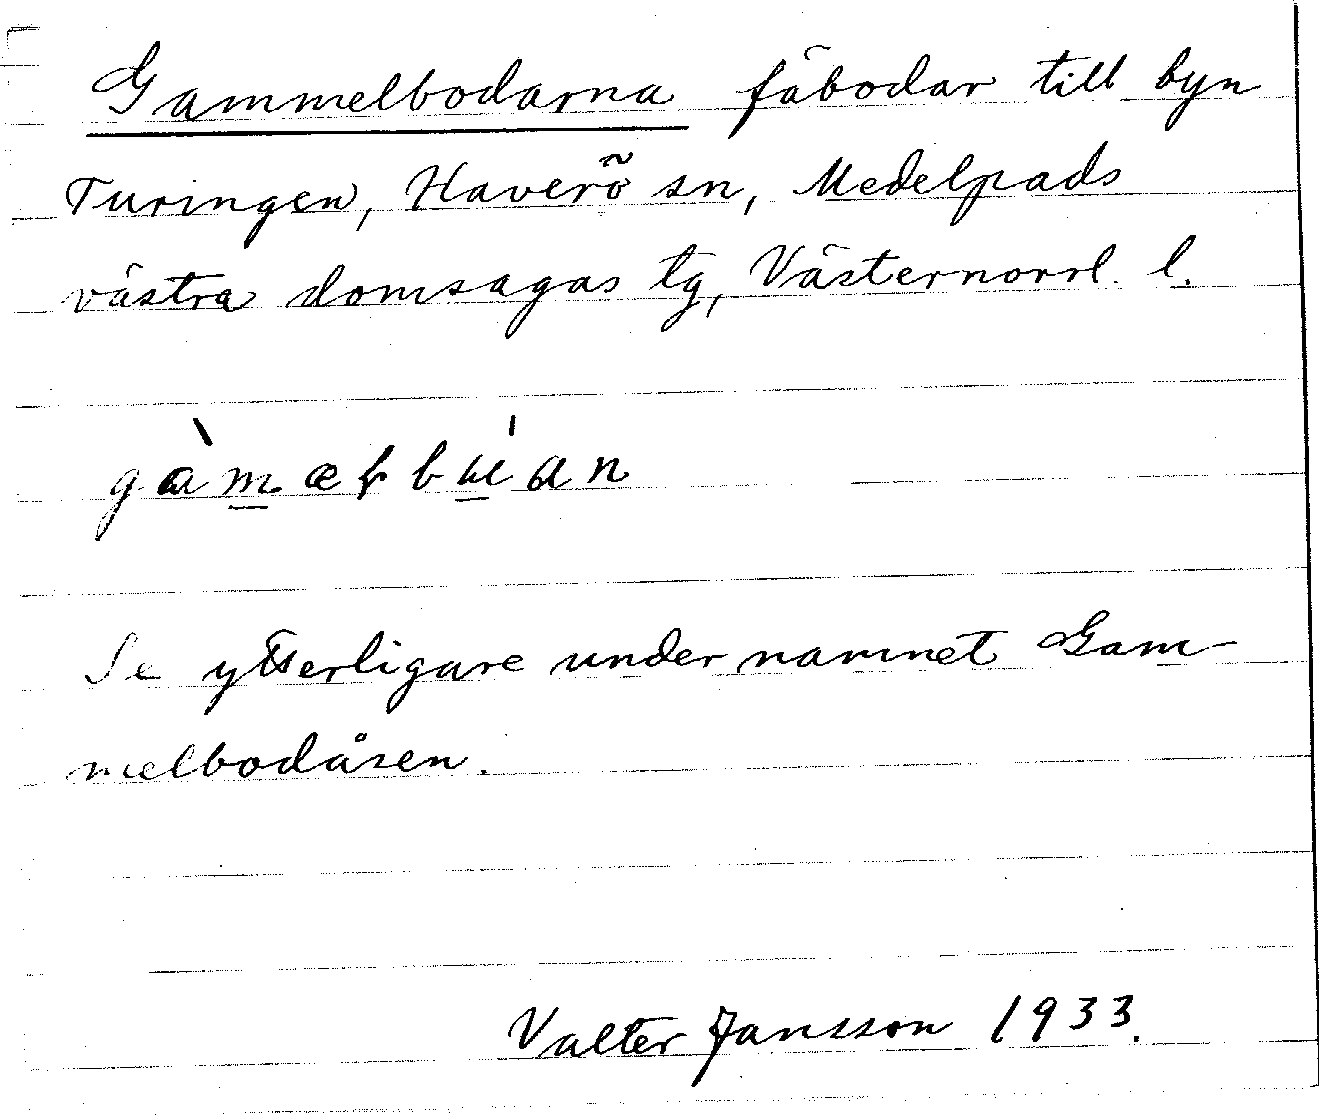 Gammelbodarna fäbodar till byn
Turingen, Haverö sn, Medelpads
västra domsagas tg, Västernorrl. l.
Se ytterligare under namnet Gam-
melbodåsen.
Valter Jansson 1933.